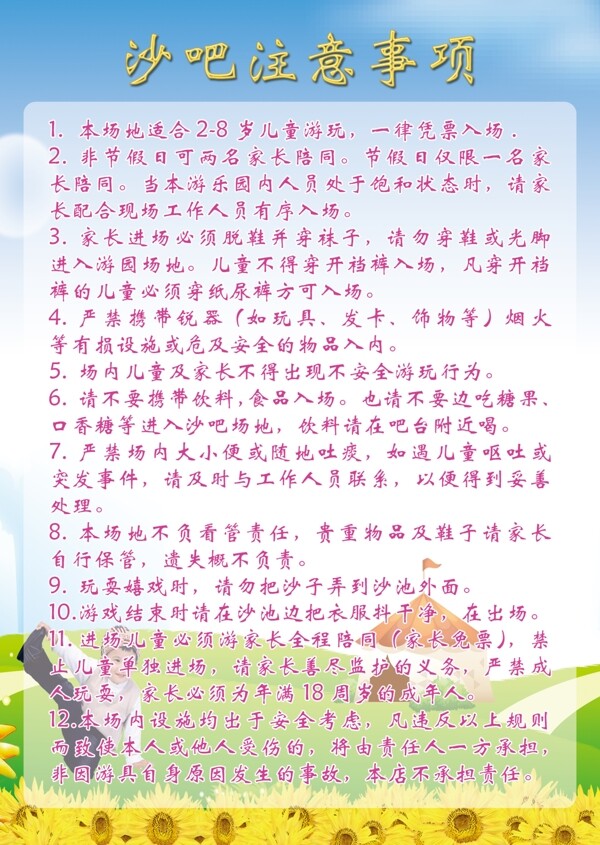 沙吧注意事项
1. 本场地适合2-8岁儿童游玩，一律凭票入场.
2. 非节假日可两名家长陪同。节假日仅限一名家
长陪同。当本游乐园内人员处于饱和状态时，请家
长配合现场工作人员有序入场。
3. 家长进场必须脱鞋并穿袜子，请勿穿鞋或光脚
进入游园场地。儿童不得穿开裆裤入场，凡穿开裆
裤的儿童必须穿纸尿裤方可入场。
4. 严禁携带锐器（如玩具、发卡、饰物等）烟火
等有损设施或危及安全的物品入内。
5. 场内儿童及家长不得出现不安全游玩行为。
6. 请不要携带饮料,食品入场。也请不要边吃糖果、
口香糖等进入沙吧场地，饮料请在吧台附近喝。
7. 严禁场内大小便或随地吐痰，如遇儿童呕吐或
突发事件，请及时与工作人员联系，以便得到妥善
处理。
8. 本场地不负看管责任，贵重物品及鞋子请家长
自行保管，遗失概不负责。
9. 玩耍嬉戏时，请勿把沙子弄到沙池外面。
10.游戏结束时请在沙池边把衣服抖干净，在出场。
11. 进场儿童必须游家长全程陪同（家长免票），禁
止儿童单独进场，请家长善尽监护的义务，严禁成
人玩耍，家长必须为年满18周岁的成年人。
12.本场内设施均出于安全考虑，凡违反以上规则
而致使本人或他人受伤的，将由责任人一方承担，
非因游具自身原因发生的事故，本店不承担责任。